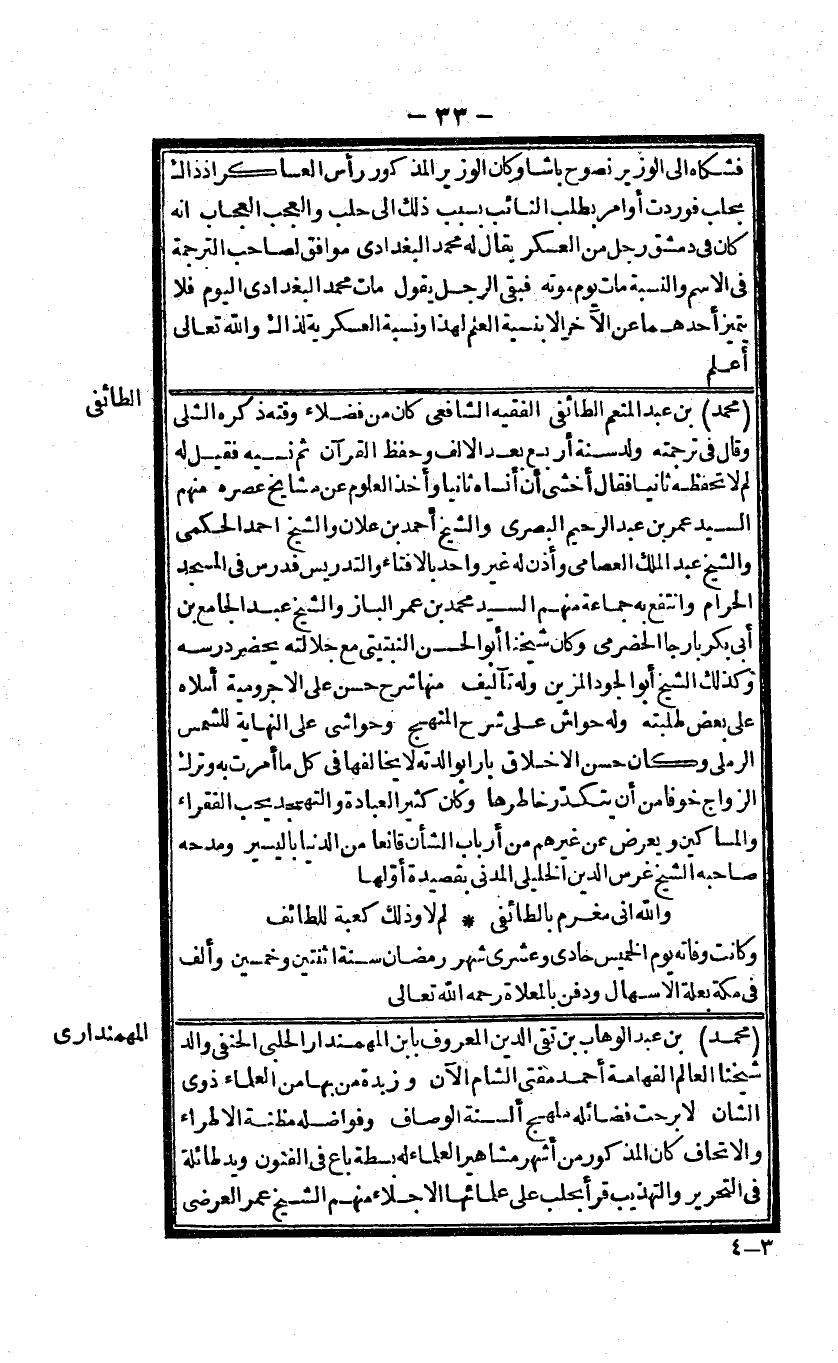 – ٣٣ –
فشكاه الى الوزير نصوح باشا وكان الوزير المذكور رأس العساكر اذ ذاك
بحلب فوردت أوامر بطلب النائب بسبب ذلك الى حلب والعجب العجاب انه
كان فى دمشق رجل من العسكر يقال له محمد البغدادى موافق لصاحب الترجمة
فى الاسم والنسبة مات يوم موته فبقى الرجل يقول مات محمد البغدادى اليوم فلا
يتميز أحدهما عن الآخر الا بنسبة العلم لهذا ونسبة العسكرية لذاك والله تعالى
أعلم
الطائفى
(محمد) بن عبد المنعم الطائفى الفقيه الشافعى كان من فضلاء وقته ذكره الشلى
وقال فى ترجمته ولد سنة أربع بعد الالف وحفظ القرآن ثم نسيه فقيل له
لم لا تحفظه ثانيا فقال أخشى أن أنساه ثانيا وأخذ العلوم عن مشايخ عصره منهم
السيد عمر بن عبد الرحيم البصرى والشيخ أحمد بن علان والشيخ احمد الحكمى
والشيخ عبد الملك العصامى وأذن له غير واحد بالافتاء والتدريس فدرس فى المسجد
الحرام وانتفع به جماعة منهم السيد محمد بن عمر الباز والشيخ عبد الجامع بن
أبى بكر بارجا الحضرمى وكان شيخنا أبو الحسن النبتيتى مع جلالته يحضر درسه
وكذلك الشيخ أبو الجود المزين وله تآليف منها شرح حسن على الاجرومية أملاه
على بعض طلبته وله حواش على شرح المنهج وحواشى على النهاية للشمس
الرملى وكان حسن الاخلاق بارا بوالدته لا يخالفها فى كل ما أمرت به وترك
الزواج خوفا من أن يتكدّر خاطرها وكان كثير العبادة والتهجد يحب الفقراء
والمساكين ويعرض عن غيرهم من أرباب الشأن قانعا من الدنيا باليسير ومدحه
صاحبه الشيخ غرس الدين الخليلى المدنى بقصيدة أوّلها
والله انى مغرم بالطائفى * لم لا وذلك كعبة للطائف
وكانت وفاته يوم الخميس حادى وعشرى شهر رمضان سنة اثنتين وخمسين وألف
فى مكة بعلة الاسهال ودفن بالمعلاة رحمه الله تعالى
المهمندارى
(محمد) بن عبد الوهاب بن تقى الدين المعروف بابن المهمندار الحلبى الحنفى والد
شيخنا العالم الفهامة أحمد مفتى الشام الآن وزبدة من بها من العلماء ذوى
الشان لا برحت فضائله ملهج ألسنة الوصاف وفواضله مظنة الاطراء
والاتحاف كان المذكور من أشهر مشاهير العلماء له بسطة باع فى الفنون ويد طائلة
فى التحرير والتهذيب قرأ بحلب على علمائها الاجلاء منهم الشيخ عمر العرضى
٣–٤